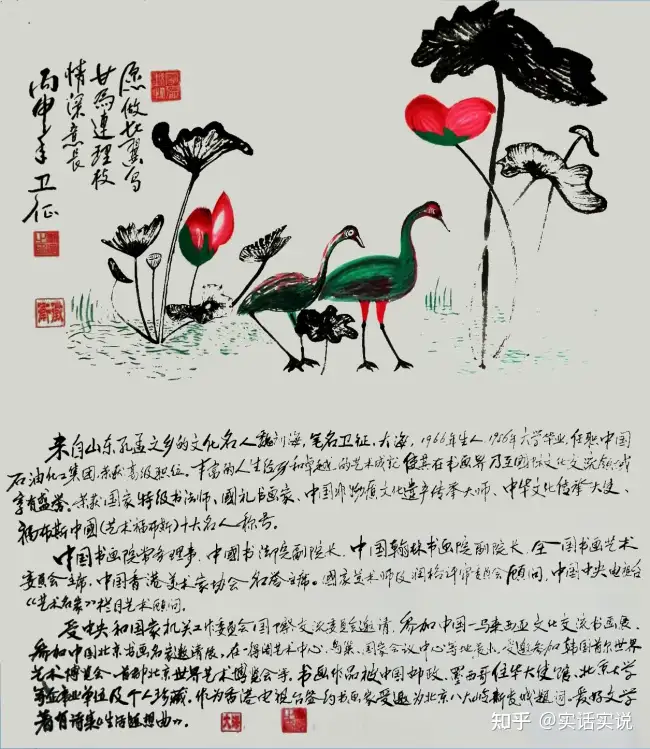 愿做比翼鸟
甘为連理枝
情深意长
丙申年卫征
来自山东孔孟之乡的文化名人魏刘海,笔名卫征、大海,1966年生人,1986年大学毕业,任职中国
石油化工集团,荣获高级职位。丰富的人生经历和卓越的艺术成就,使其在书画界乃至国际文化交流领域
享有盛誉。荣获国家特级书法师、國礼书画家、中国非物质文化遗产传承大师、中华文化传承大使、
福布斯中國《艺术福布斯》十大名人称号。
中国书画院常务理事、中國书法院副院长、中國翰林书画院副院长、全国书画艺术
委员会主席、中国香港美术家协会名誉主席。國家美术师及润格评审委员会顾问,中国中央电视台
《艺术名家》栏目艺术顾问。
受中央和国家机关工作委员会国际交流委员会邀请,参加中国—马来西亚文化交流书画展、
参加中国北京书画名家邀请展,在梅阁艺术中心、鸟巢、国家会议中心等地展示,受邀参加韩国首尔世界
艺术博览会、首都北京世界艺术博览会等。书画作品被中国邮政、墨西哥住华大使馆、北京大学
等企事业单位及个人珍藏。作为香港电视台签约书画家受邀为北京八大岭新长城题词。爱好文学
著有诗集《生活随想曲》。
知乎 @实话实说